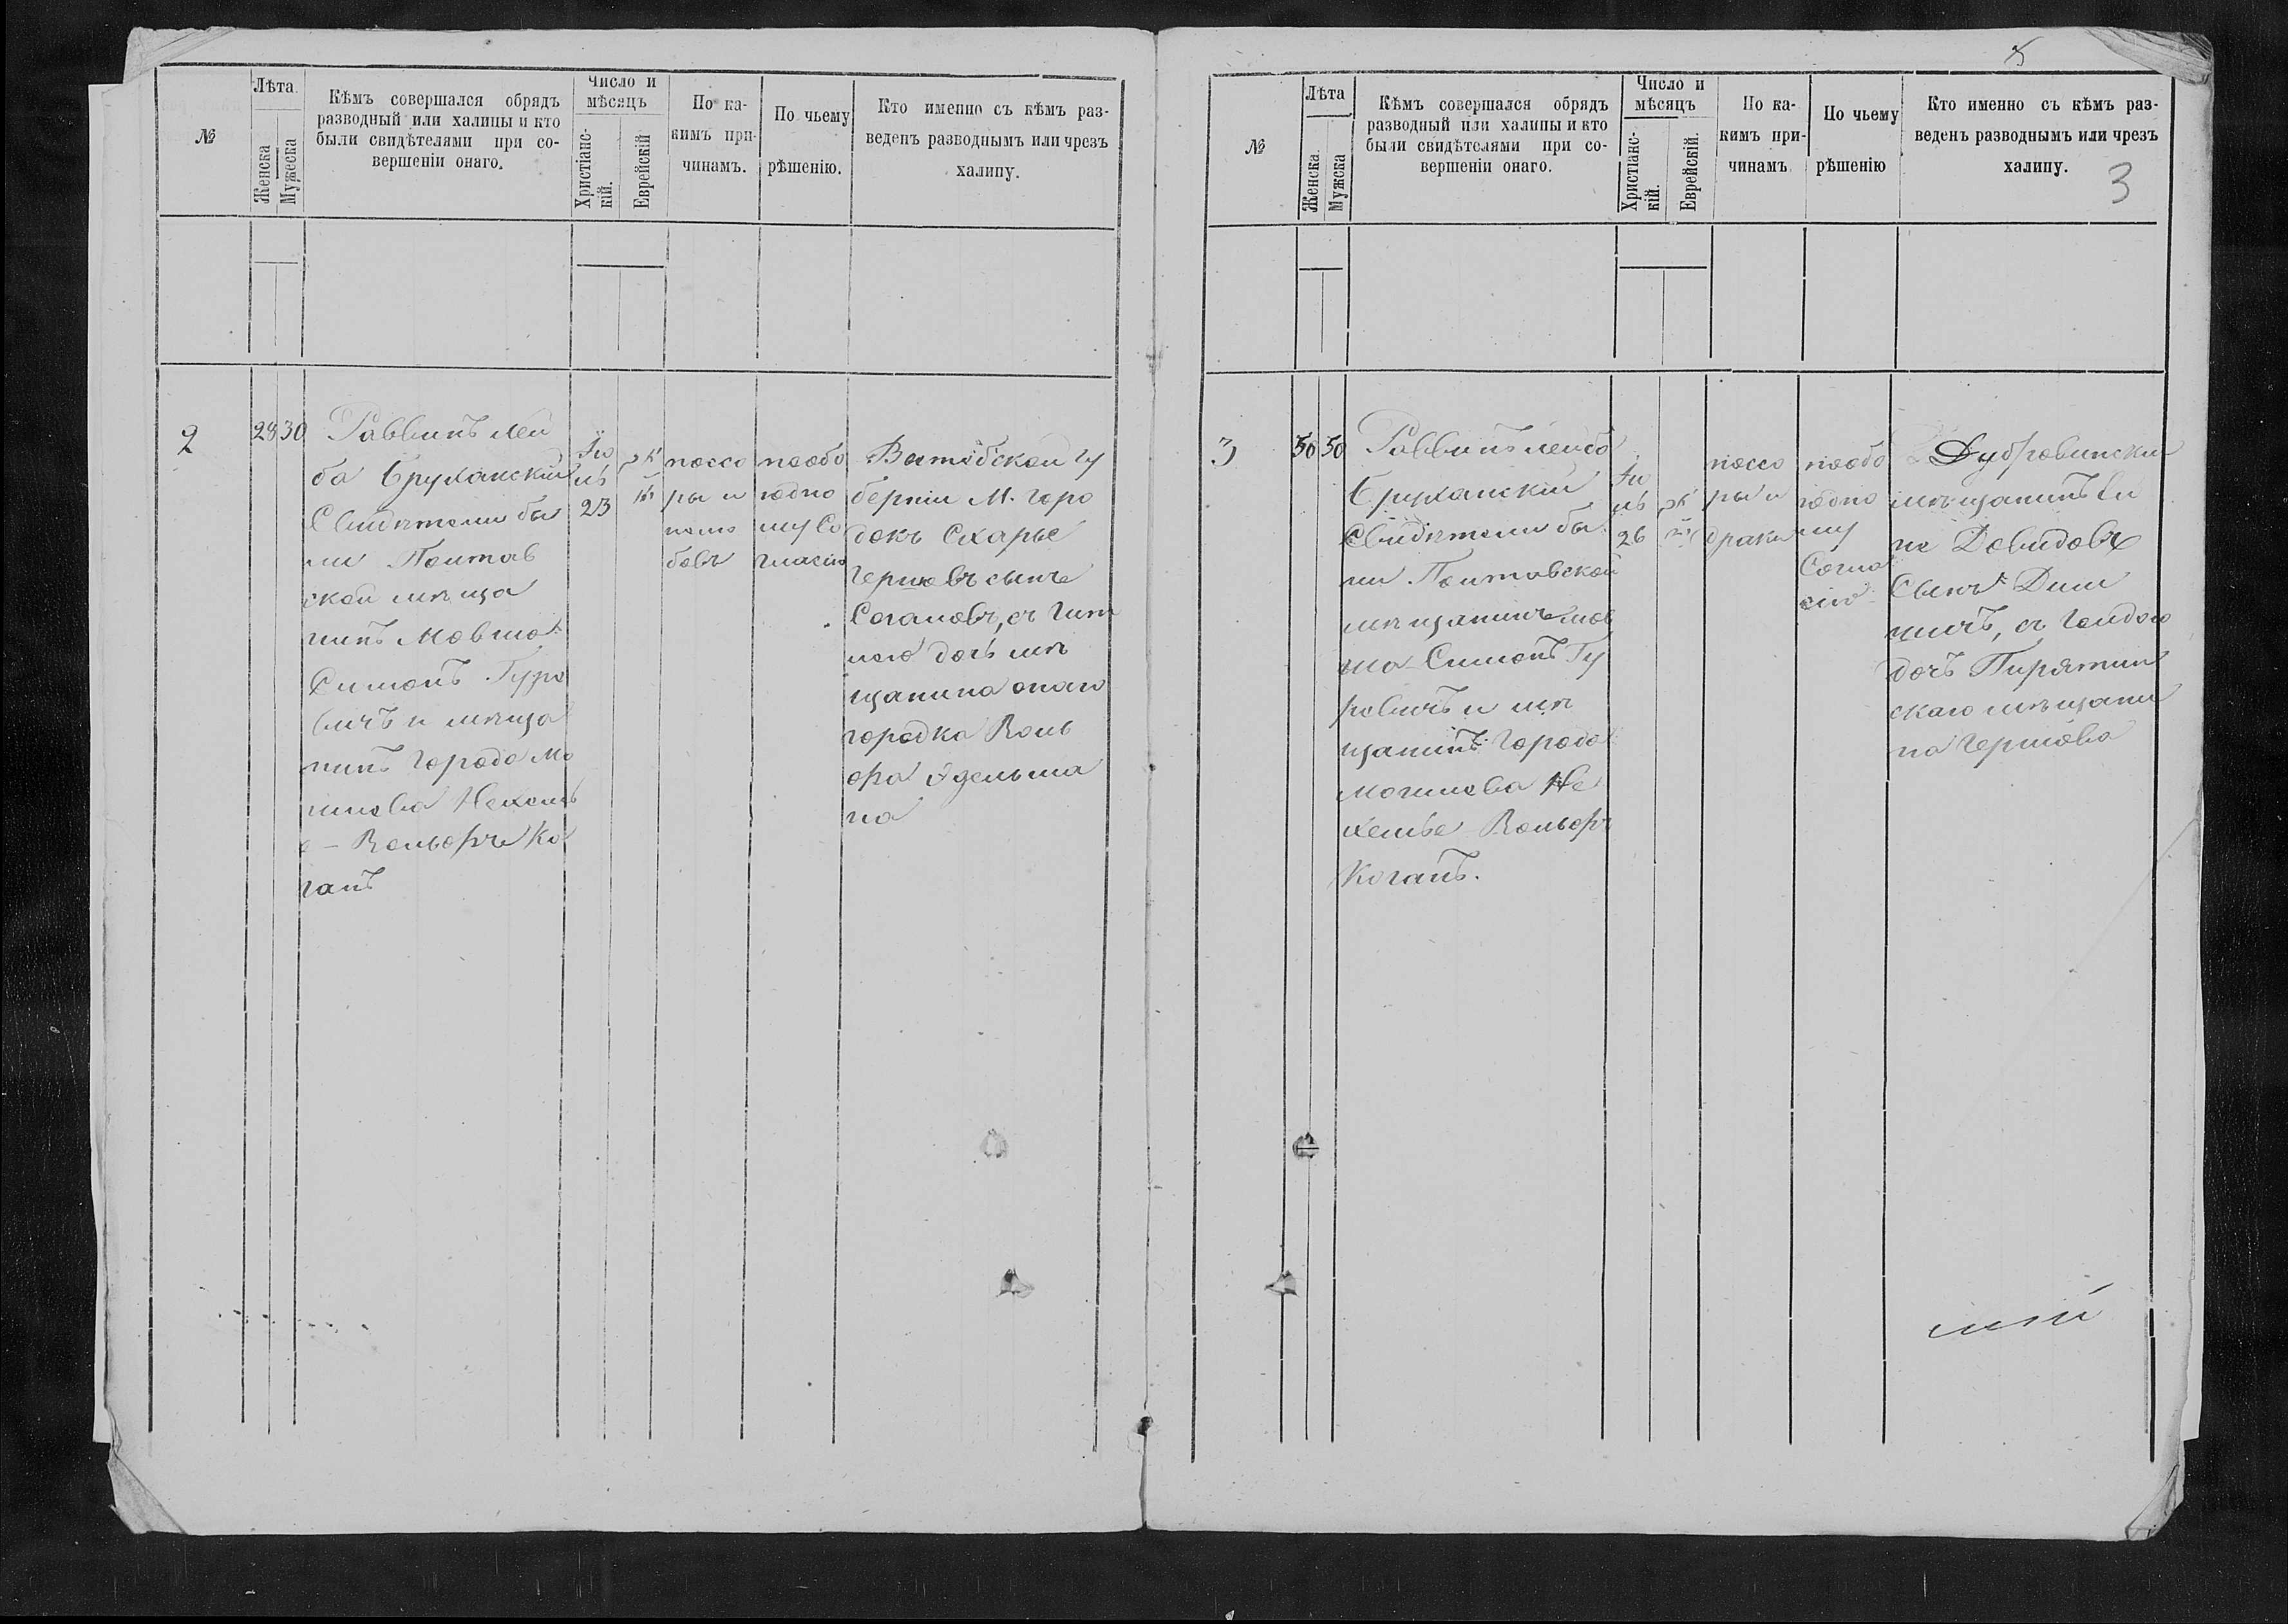 №
Лѣта.
Женска
Мужеска
Кѣмъ совершался обрядъ
разводный или халицы и кто
были свидѣтелями при со-
вершеніи онаго.
Число и
мѣсяцъ
Христіанс-
кій.
Еврейскій
По ка-
кимъ при-
чинамъ.
По чьему
рѣшенію.
Кто именно съ кѣмъ раз-
веденъ разводнымъ или чрезъ
халицу.
2
28
30
Раввинъ Лей
ба Бруханскій
Свидѣтели бы
ли Полтав
ской мѣща
нинъ Мовша
Симонъ Гуре
вичъ и мѣща
нинъ города Мо
гилева Нехемь
е - Вольфъ Ко
ганъ
Ію
нь
23
поссо
ры и
побо
въ
пообо
юдно
му Со
гласію
Витебской гу
берніи М. горо
докъ Схарье
Гершовъ сынъ
с Гит
лею дочь мѣ
щанина онаго
городка Воль
фа Эдельма
на
№
Лѣта
Женска
Мужска
Кѣмъ совершался обрядъ
разводный или халицы и кто
были свидѣтелями при со-
вершеніи онаго.
Число и
мѣсяцъ
Христіанс-
кій.
Еврейскій.
По ка-
кимъ при-
чинамъ
По чьему
рѣшенію
Кто именно съ кѣмъ раз-
веденъ разводнымъ или чрезъ
халицу.
3
3
50
50
Раввинъ Лейба
Бруханскій
Свидѣтели бы
ли Полтавской
мѣщанинъ Мов
ша Симонъ Гу
ревичъ и мѣ
щанинъ города
Могилева Не
хемье Вольфъ
Коганъ.
Ію
нь
26
поссо
ры и
драки
пообо
юдно
му
Согла
сію
Дубровинскій
мѣщанинъ
Довидовъ
Сынъ
съ Гендою
дочь Пирятин
скаго мѣщани
на Гершова